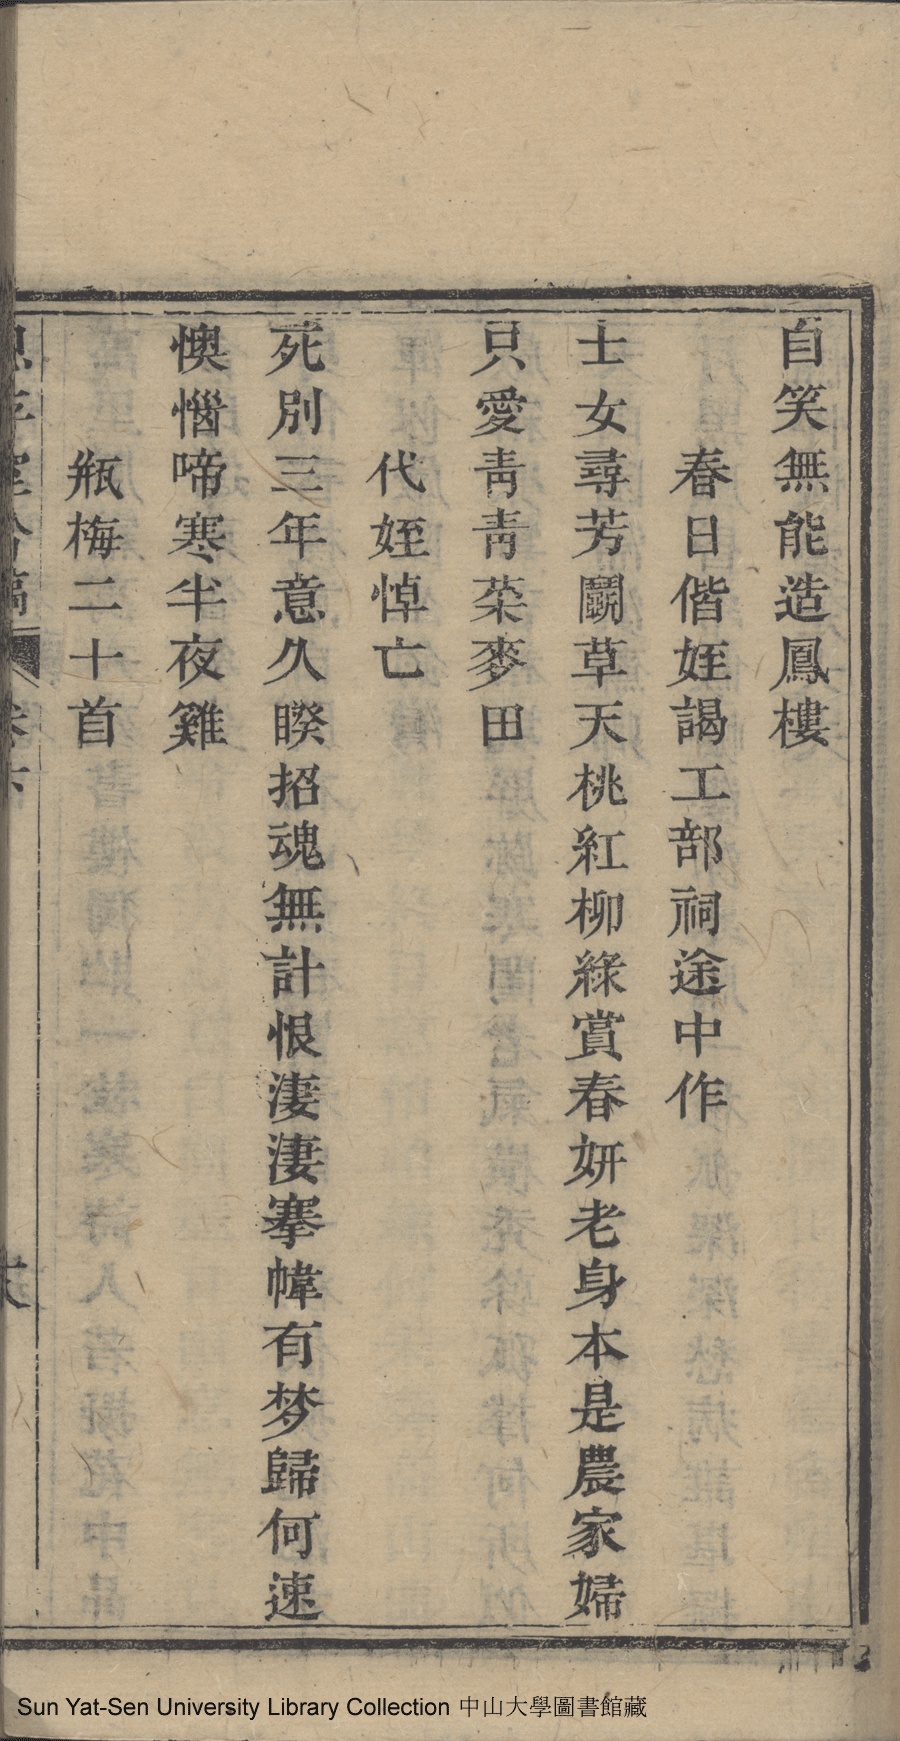 自笑無能造鳳樓
春日偕姪謁工部祠途中作
士女尋芳鬭草天桃紅柳綠賞春妍老身本是農家婦
只愛靑靑菜麥田
代姪悼亡
死別三年意久睽招魂無計恨淒淒搴幃有梦歸何速
懊惱啼寒半夜雞
瓶梅二十首
Sun Yat-Sen University Library Collection 中山大學圖書館藏